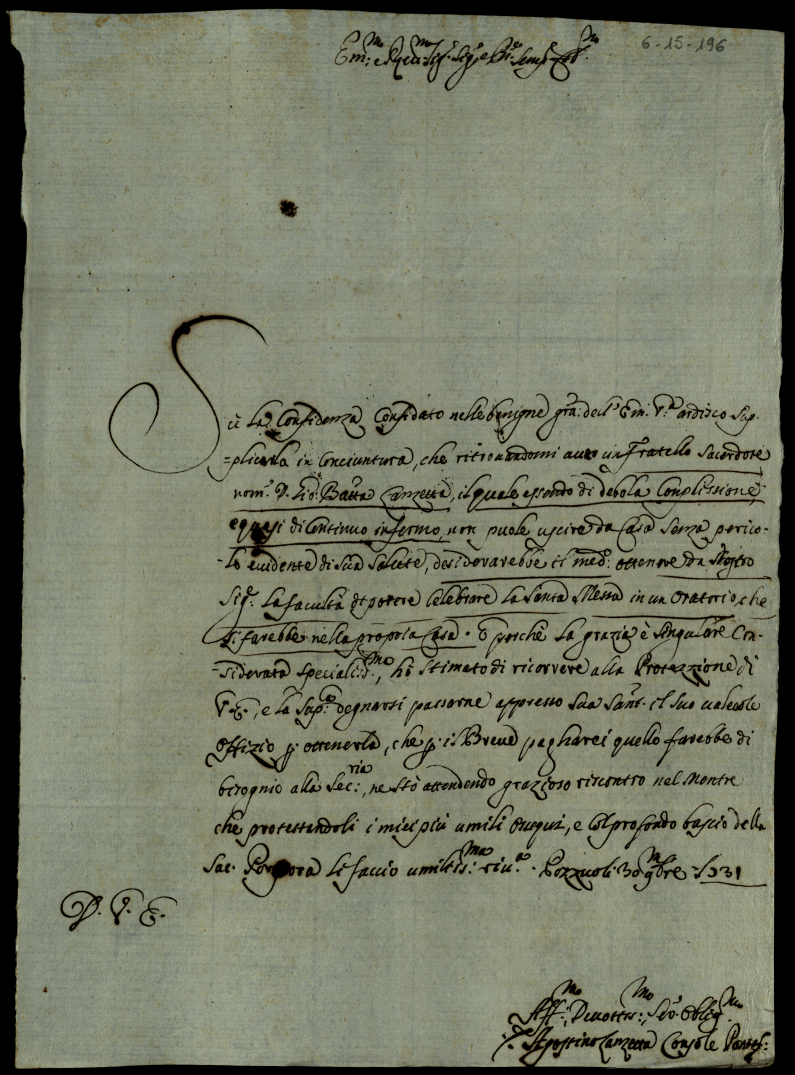 6-15-196
Em:mo e R
Sù la Confidenza Confidato nelle benigne gra: dell' Em: V:ra ardisco Sup-
=plicarla in Conciuntura, che ritrovandomi auto un Fratello Sacerdote
nom:e D. Gio: Batta Canzetta, il quale essendo di debola Conplissione,
e quasi di Continuo infermo, non puole uscire da Casa senza perico-
-lo evidente di sua Salute, desiderarebbe il med:o ottenere da Nostro
Sig:r la facultà di potere Celebrare la Santa Messa in un Oratorio, che
si farebbe nella propria Casa. E perche la grazia è singulare Con-
-siderata speciali:ma, hò stimato di ricorrere alla Protezzione di
V. E., e la Sup:co degnarsi passarne appresso Sua Sant:à il suo valevole
Offizio p ottenerla, che p il Breve pagharei quello farebbe di
bisognio alla Sec:ria, ne stò attendendo grazioso riscontro nel mentre
che protestandoli i miei più umili ossequi, e col profondo bascio della
Sac: Porpora li faccio umiliss:ma riv:a. Pozzuoli 30 9mbre 1731
D. V. E.
Aff:mo Devottis:mo Ser:o Oblig:mo
Agostino Canzetta Console Pontef: